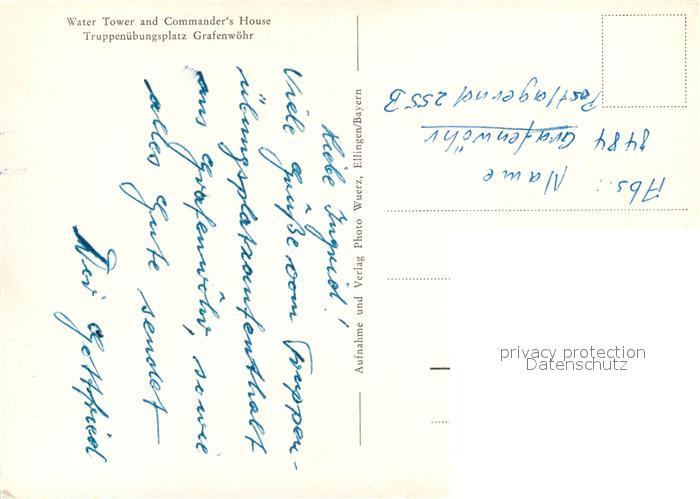 Water Tower and Commander's House
Truppenübungsplatz Grafenwöhr
Liebe Ingrid!
Viele Grüße vom Truppen-
übungsplatzaufenthalt
aus Grafenwöhr, sowie
alles Gute sendet
Dir Gottfried
Aufnahme und Verlag Photo Wuerz, Ellingen/Bayern
Abs.: Name
8484 Grafenwöhr
Postlagernd 255 B
privacy protection
Datenschutz